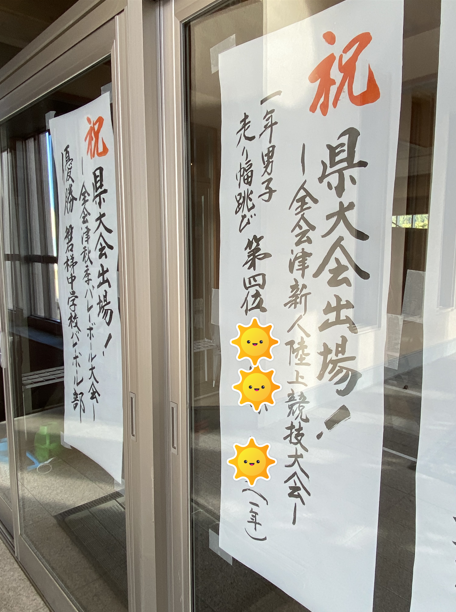 祝
県大会出場!
ー全会津新人陸上競技大会ー
一年男子
走り幅跳び 第四位
(一年)
祝
県大会出場!
ー全会津秋季バレーボール大会ー
優勝 磐梯中学校バレーボール部